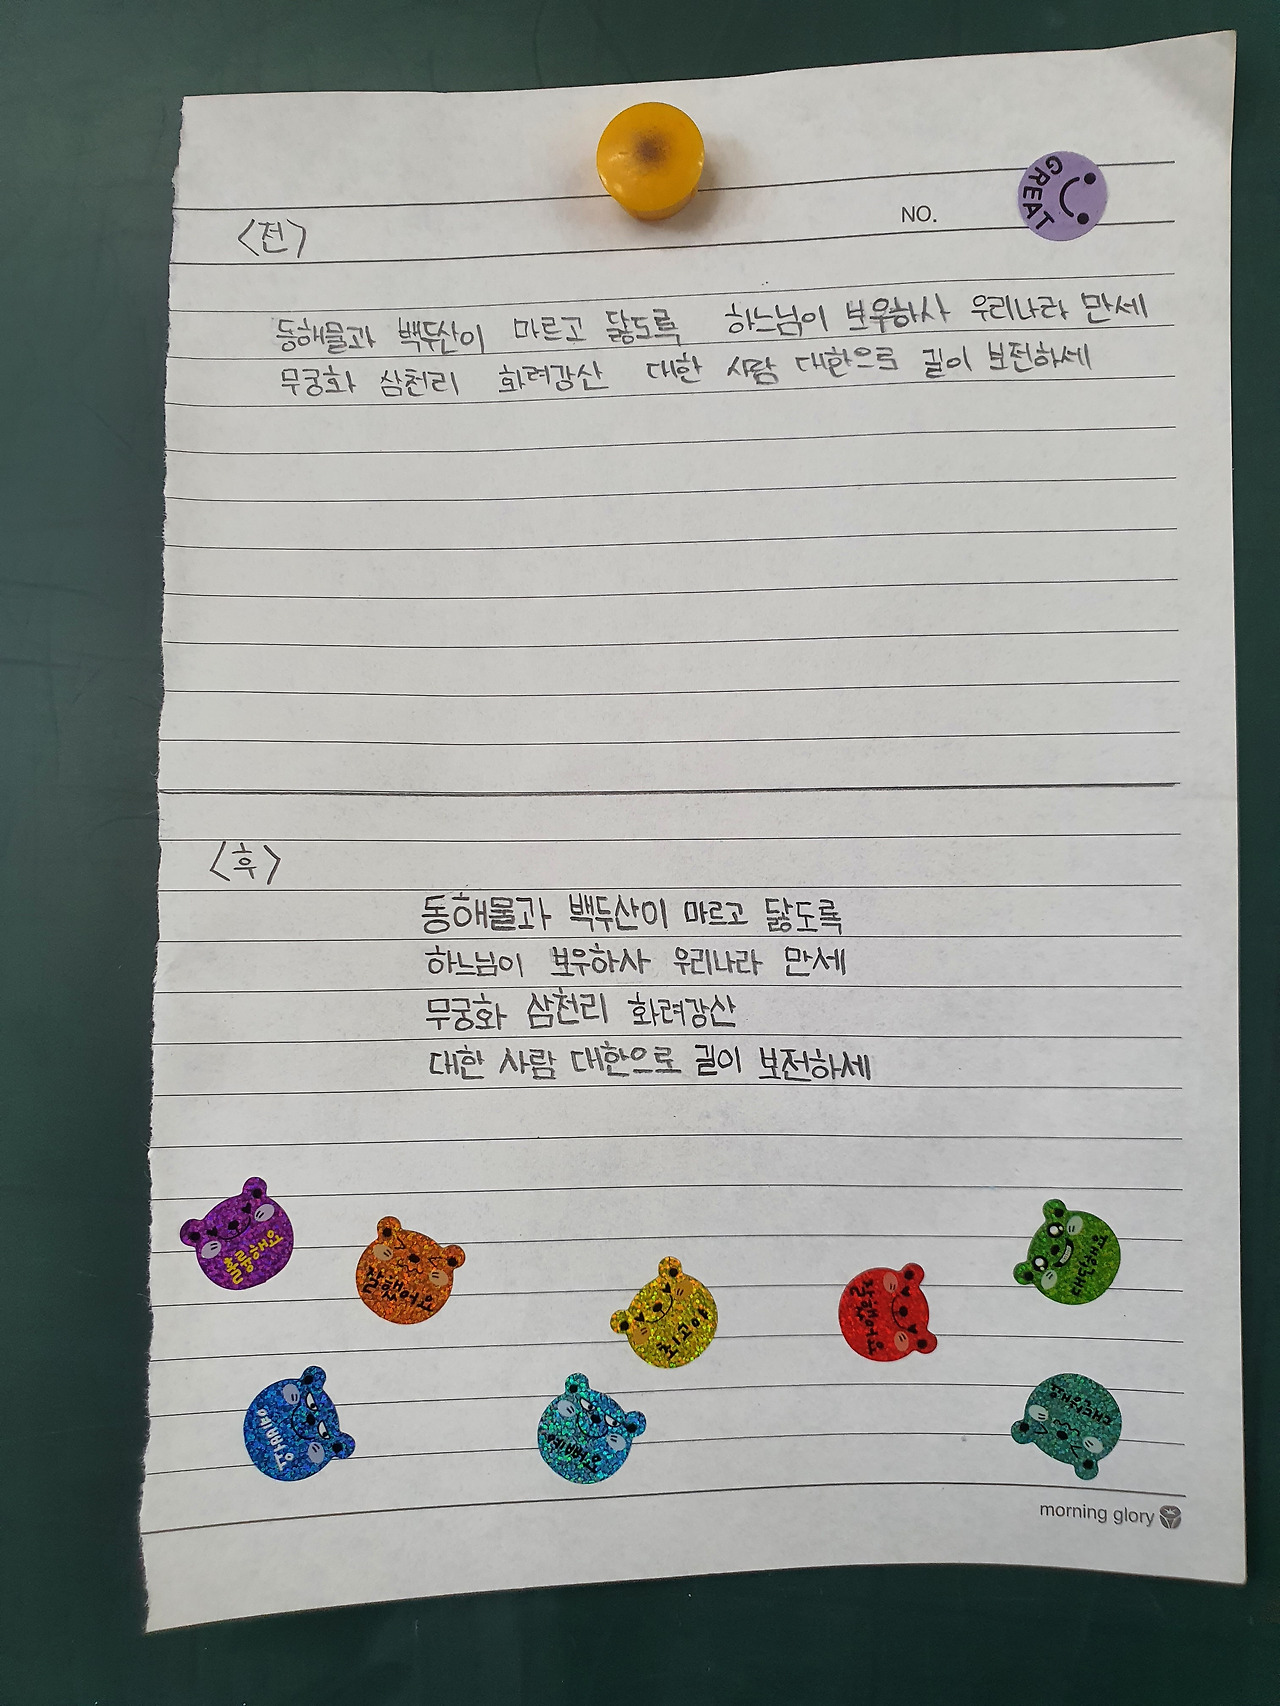 GREAT
NO.
<전>
동해물과 백두산이 마르고 닳도록 하느님이 보우하사 우리나라 만세
무궁화 삼천리 화려강산 대한 사람 대한으로 길이 보전하세
<후>
동해물과 백두산이 마르고 닳도록
하느님이 보우하사 우리나라 만세
무궁화 삼천리 화려강산
대한 사람 대한으로 길이 보전하세
훌륭해요
잘했어요
최고야
잘했어요
대단해요
morning glory